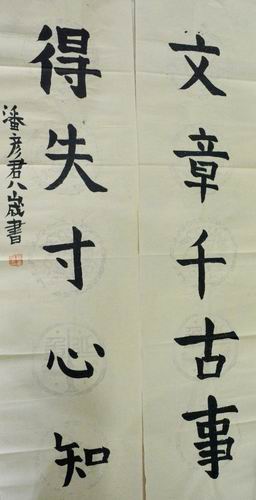 文章千古事
得失寸心知
潘彦君八歲書